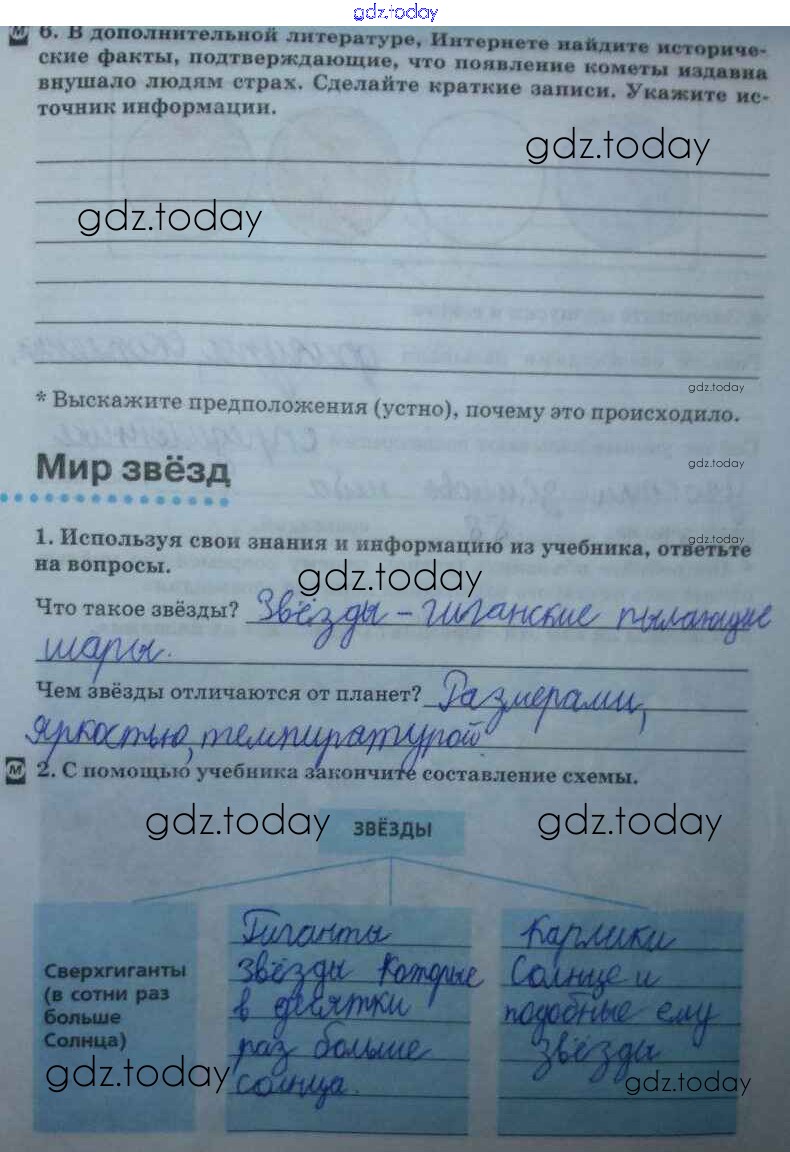 gdz.today
6. В дополнительной литературе, Интернете найдите историче-
ские факты, подтверждающие, что появление кометы издавна
внушало людям страх. Сделайте краткие записи. Укажите ис-
точник информации.
gdz.today
gdz.today
gdz.today
* Выскажите предположения (устно), почему это происходило.
Мир звёзд
gdz.today
1. Используя свои знания и информацию из учебника, ответьте
gdz.today
на вопросы.
gdz.today
Что такое звёзды? Звёзды – гиганские пылающие
шары.
Чем звёзды отличаются от планет? Размерами,
яркостью, темпиратурой
М 2. С помощью учебника закончите составление схемы.
gdz.today ЗВЁЗДЫ gdz.today
Сверхгиганты
(в сотни раз
больше
Солнца)
Гиганты
звёзды которые
в десятки
раз больше
солнца.
Карлики
Солнце и
подобные ему
звёзды
gdz.today
gdz.today